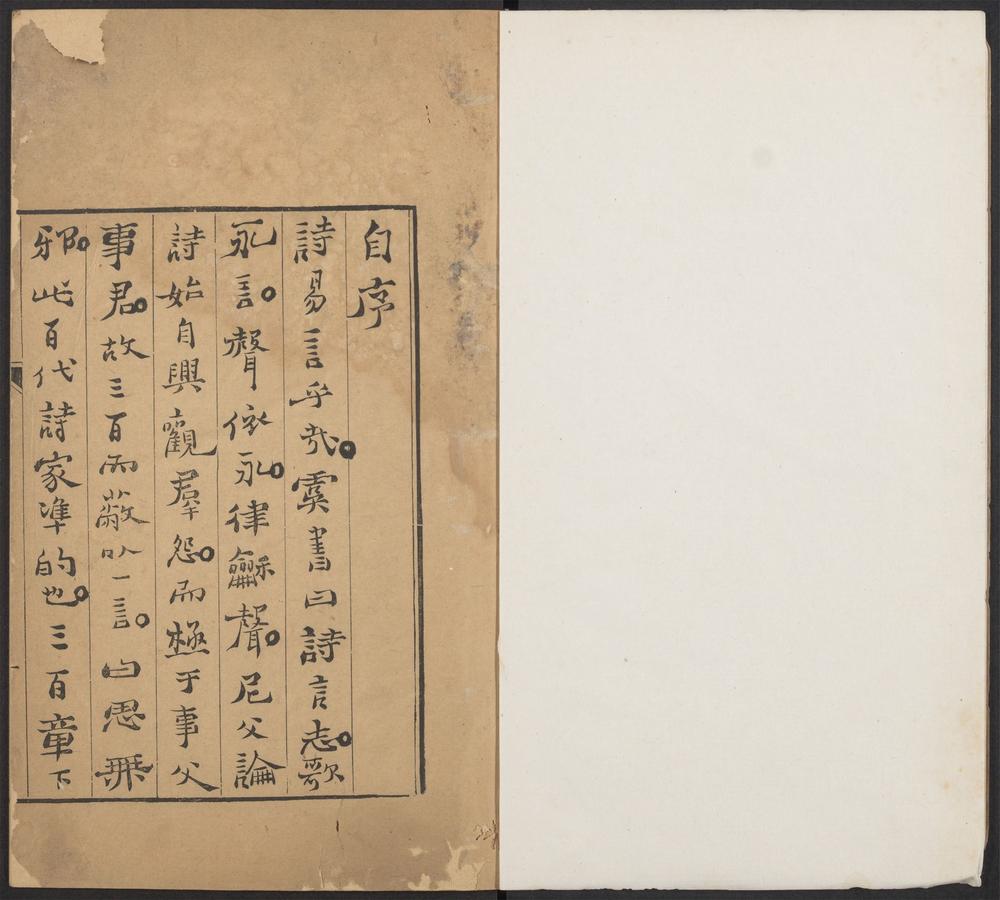 自序
詩易言乎哉。虞書曰詩言志。歌
永言。聲依永。律龢聲。尼父論
詩始自興觀羣怨。而極于事父
事君。故三百而蔽以一言。曰思無
邪。此百代詩家準的也。三百章下